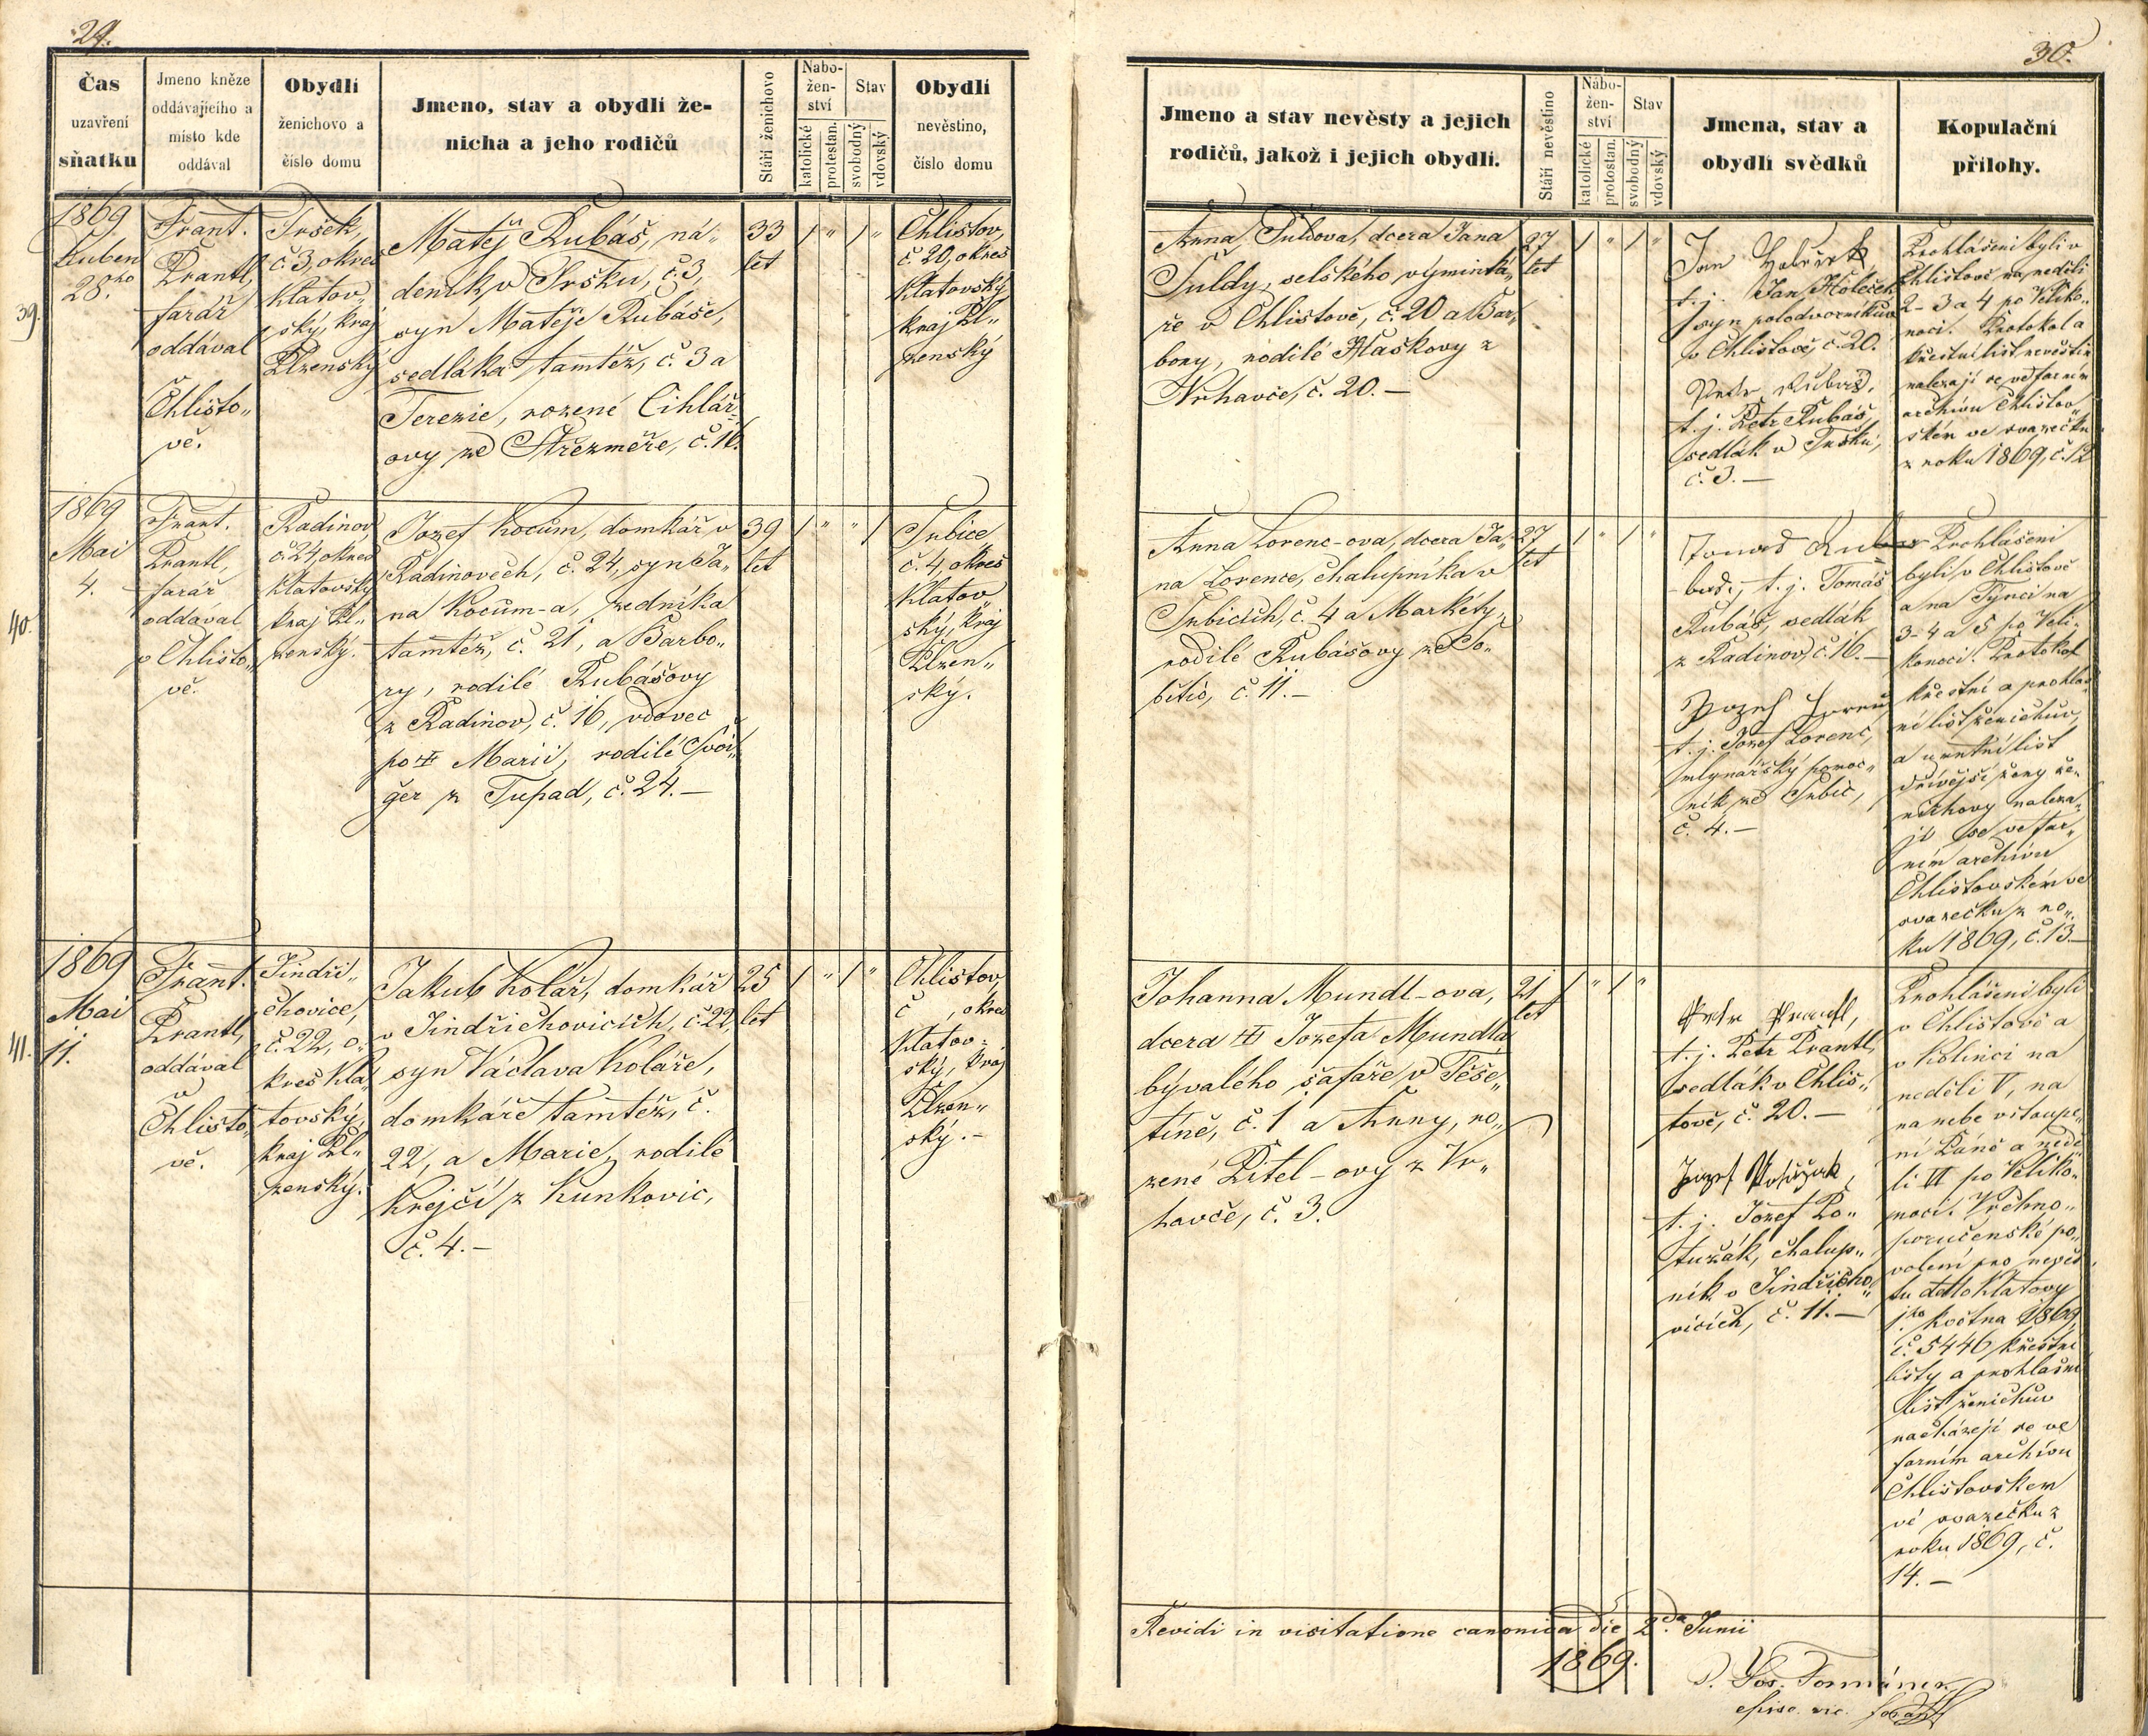 29.
Čas
uzavření
sňatku
Jmeno kněze
oddávajícího a
místo kde
oddával
Obydlí
ženichovo a
číslo domu
Jmeno, stav a obydlí že-
nicha a jeho rodičů
Stáří ženichovo
Nabo-
žen-
ství
katolické
protestan.
Stav
svobodný
vdovský
Obydlí
nevěstino,
číslo domu
39.
1869
Duben
28.ho
Frant.
Prantl,
farář
oddával
v
Chlisto„
vě.
Tršek,
č. 3, okres
Klatov„
ský, kraj
Plzenský
Matěj Rubáš, ná„
deník, v Tršku, č. 3,
syn Matěje Rubáše,
sedláka tamtéž, č. 3 a
Terezie, rozené Cihlář„
ovy ze Střezměře, č. 16.
33
let
1 „ 1 „
Chlistov,
č. 20, okres
Klatovský,
kraj Pl„
zenský
40.
1869
Mai
4.
Frant.
Prantl,
farář
oddával
v Chlisto„
vě.
Radinov
č. 24, okres
Klatovský
kraj Pl„
zenský.
Jozef Kocum, domkář v
Radinovech, č. 24, syn Ja„
na Kocum-a, zedníka
tamtéž, č. 21, a Barbo„
ry, rodilé Rubášovy
z Radinov, č. 16, vdovec
po † Marii, rodilé Švei„
ger z Tupad, č. 24. —
39
let
1 „ „ 1
Srbice,
č. 4, okres
Klatov„
ský, kraj
Plzen„
ský.
41.
1869
Mai
11.
Frant.
Prantl,
oddával
v
Chlisto„
vě.
Jindři„
chovice,
č. 22, o„
kres Kla„
tovský,
kraj Pl„
zenský.
Jakub Kolář, domkář
v Jindřichovicích, č. 22,
syn Václava Koláře,
domkáře tamtéž, č.
22, a Marie, rodilé
Krejčí z Kunkovic,
č. 4. —
25
let
1 „ 1 „
Chlistov,
č , okres
Klatov„
ský, kraj
Plzen„
ský. —
30.
Jmeno a stav nevěsty a jejich
rodičů, jakož i jejich obydlí.
Stáří nevěstino
Nábo-
žen-
ství
katolické
protestan.
Stav
svobodný
vdovský
Jmena, stav a
obydlí svědků
Kopulační
přílohy.
Anna Šuldova, dcera Jana
Šuldy, selského výminká„
ře v Chlistově, č. 20 a Bar„
bory, rodilé Hlaškovy z
Vrhavče, č. 20. —
27
let
1 „ 1 „
t. j. Jan Holeček
syn polodvorníkův
v Chlistově, č. 20.
Petr Rubáš,
t. j. Petr Rubáš,
sedlák v Tršku,
č. 3. —
Prohlášeni byli v
Chlistově na neděli
2 - 3 a 4 po Veliko„
noci. Protokol a
křestní list nevěstin
nalezají se ve farním
archivu Chlistov„
ském ve svazečku
z roku 1869, č. 12
Anna Lorenc-ova, dcera Ja„
na Lorence, chalupníka v
Srbicích, č. 4 a Markéty,
rodilé Rubášovy ze So„
bětic, č. 11. —
27
let
1 „ 1 „
t. j. Tomáš
Rubáš, sedlák
z Radinov, č. 16. —
t. j. Jozef Lorenc,
mlynářský pomoc„
ník ze Srbic,
č. 4. —
Prohlášeni
byli v Chlistově
a na Týnci na
3 - 4 a 5 po Veli„
konoci. Protokol
křestní a prohláš„
ní list ženichův,
a úmrtní list
dřívější ženy že„
nichovy naleza„
jí se ve far„
ním archivu
Chlistovském ve
svazečku z ro„
ku 1869, č. 13. —
Johanna Mundl-ova,
dcera † Jozefa Mundla
bývalého šafáře v Těše„
tíně, č. 1 a Anny, ro„
zené Pitel-ovy z Vr„
havče, č. 3.
21
let
1 „ 1 „
Petr Prantl,
t. j. Petr Prantl,
sedlák v Chlis„
tově, č. 20. —
t. j. Jozef Po„
tužák, chalup„
ník v Jindřicho„
vicích, č. 11. —
Prohlášeni byli
v Chlistově a
v Kolinci na
neděli V, na
na nebe vstoupe„
ní Páně a nedě„
li VI po Veliko„
noci. Vrchno„
poručenské po„
volení pro nevěs„
tu ddto Klatovy
1.ho května 1869,
č. 5446 křestní
listy a prohlašní
list ženichův
nacházejí se ve
farním archivu
Chlistovském
ve svazečku z
roku 1869, č.
14. —
Revidi in visitatione canonica die 2da Junii
1869.